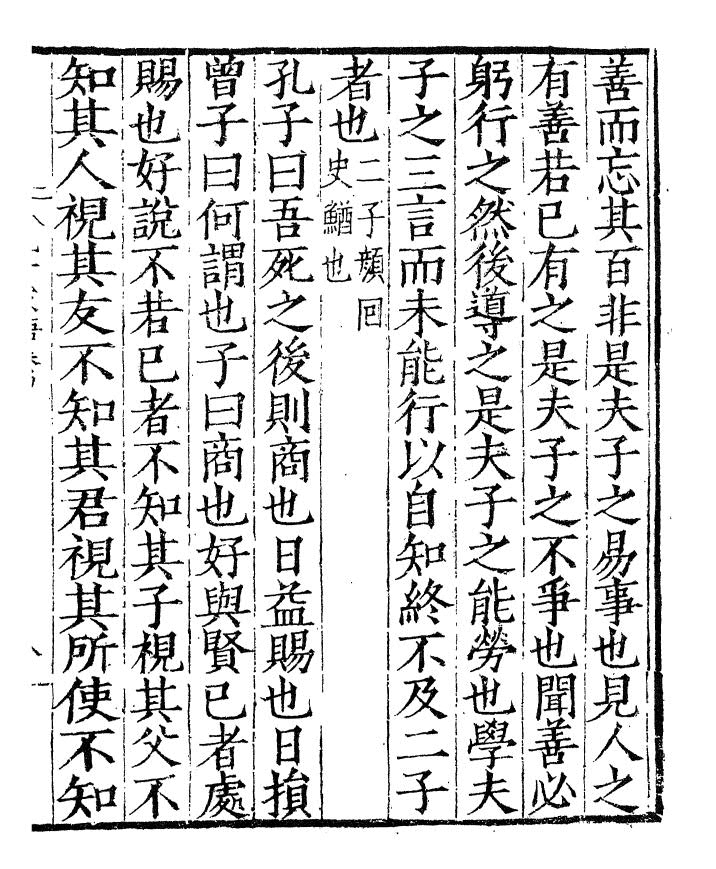 善而忘其百非是夫子之易事也見人之
有善若已有之是夫子之不爭也聞善必
躬行之然後導之是夫子之能勞也學夫
子之三言而未能行以自知終不及二子
者也二子顏回
史鰌也
孔子曰吾死之後則商也日益賜也日損
曾子曰何謂也子曰商也好與賢已者處
賜也好說不若已者不知其子視其父不
知其人視其友不知其君視其所使不知